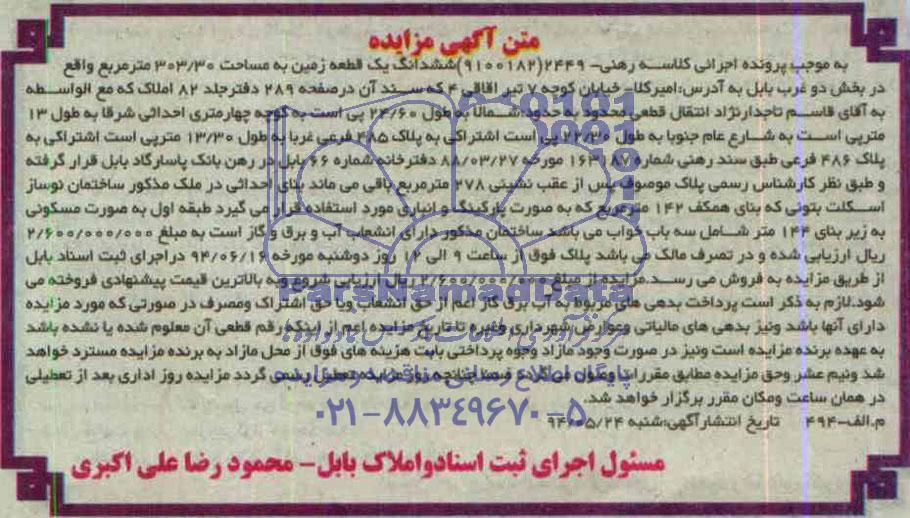 متن آگهی مزایده
به موجب پرونده اجرائی کلاسه رهنی- ۲۴۴۹(۹۱۰۰۱۸۲)ششدانگ یک قطعه زمین به مساحت ۳۰۳/۳۰ مترمربع واقع
در بخش دو غرب بابل به آدرس:امیرکلا- خیابان کوچه ۷ تیر اقاقی ۴ که سند آن درصفحه ۲۸۹ دفترجلد ۸۲ املاک که مع الواسطه
به آقای قاسم تاجدارنژاد انتقال قطعی محدود به حدود:شمالا به طول ۲۴/۶۰ پی است به کوچه چهارمتری احداثی شرقا به طول ۱۳
متر پی است به شارع عام جنوبا به طول ۲۲/۳۰ پی است اشتراکی به پلاک ۴۸۵ فرعی غربا به طول ۱۳/۳۰ متر پی است اشتراکی به
پلاک ۴۸۶ فرعی طبق سند رهنی شماره ۱۶۳۱۸۷ مورخه ۸۸/۰۳/۲۷ دفترخانه شماره ۶۶ بابل در رهن بانک پاسارگاد بابل قرار گرفته
و طبق نظر کارشناس رسمی پلاک موصوف پس از عقب نشینی ۲۷۸ مترمربع باقی می ماند بنای احداثی در ملک مذکور ساختمان نوساز
اسکلت بتونی که بنای همکف ۱۴۲ مترمربع که به صورت پارکینگ و انباری مورد استفاده قرار می گیرد طبقه اول به صورت مسکونی
به زیر بنای ۱۴۴ متر شامل سه باب خواب می باشد ساختمان مذکور دارای انشعاب آب و برق و گاز است به مبلغ ۲/۶۰۰/۰۰۰/۰۰۰
ریال ارزیابی شده و در تصرف مالک می باشد پلاک فوق از ساعت ۹ الی ۱۲ روز دوشنبه مورخه ۹۴/۰۶/۱۶ دراجرای ثبت اسناد بابل
از طریق مزایده به فروش می رسد.مزایده از مبلغ ۲/۶۰۰/۰۰۰/۰۰۰ ریال ارزیابی شروع و به بالاترین قیمت پیشنهادی فروخته می
شود.لازم به ذکر است پرداخت بدهی های مربوط به آب برق گاز اعم از حق انشعاب ویا حق اشتراک ومصرف در صورتی که مورد مزایده
دارای آنها باشد ونیز بدهی های مالیاتی وعوارض شهرداری وغیره تا تاریخ مزایده اعم از اینکه رقم قطعی آن معلوم شده یا نشده باشد
به عهده برنده مزایده است ونیز در صورت وجود مازاد وجوه پرداختی بابت هزینه های فوق از محل مازاد به برنده مزایده مسترد خواهد
شد ونیم عشر وحق مزایده مطابق مقررات وصول می گردد ضمنا چنانچه روز مزایده تعطیل رسمی گردد مزایده روز اداری بعد از تعطیلی
در همان ساعت ومکان مقرر برگزار خواهد شد.
م.الف-۴۹۴ تاریخ انتشار آگهی:شنبه ۹۴/۰۵/۲۴
مسئول اجرای ثبت اسنادواملاک بابل- محمود رضا علی اکبری
ParsNamadData
پایگاه اطلاع رسانی مناقصه و مزایده
۰۲۱-۸۸۳۴۹۶۷۰-۵